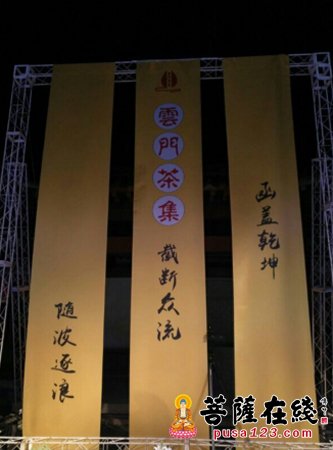 函盖乾坤
雲門茶集
截断众流
随波逐浪
菩薩在綫
pusa123.com